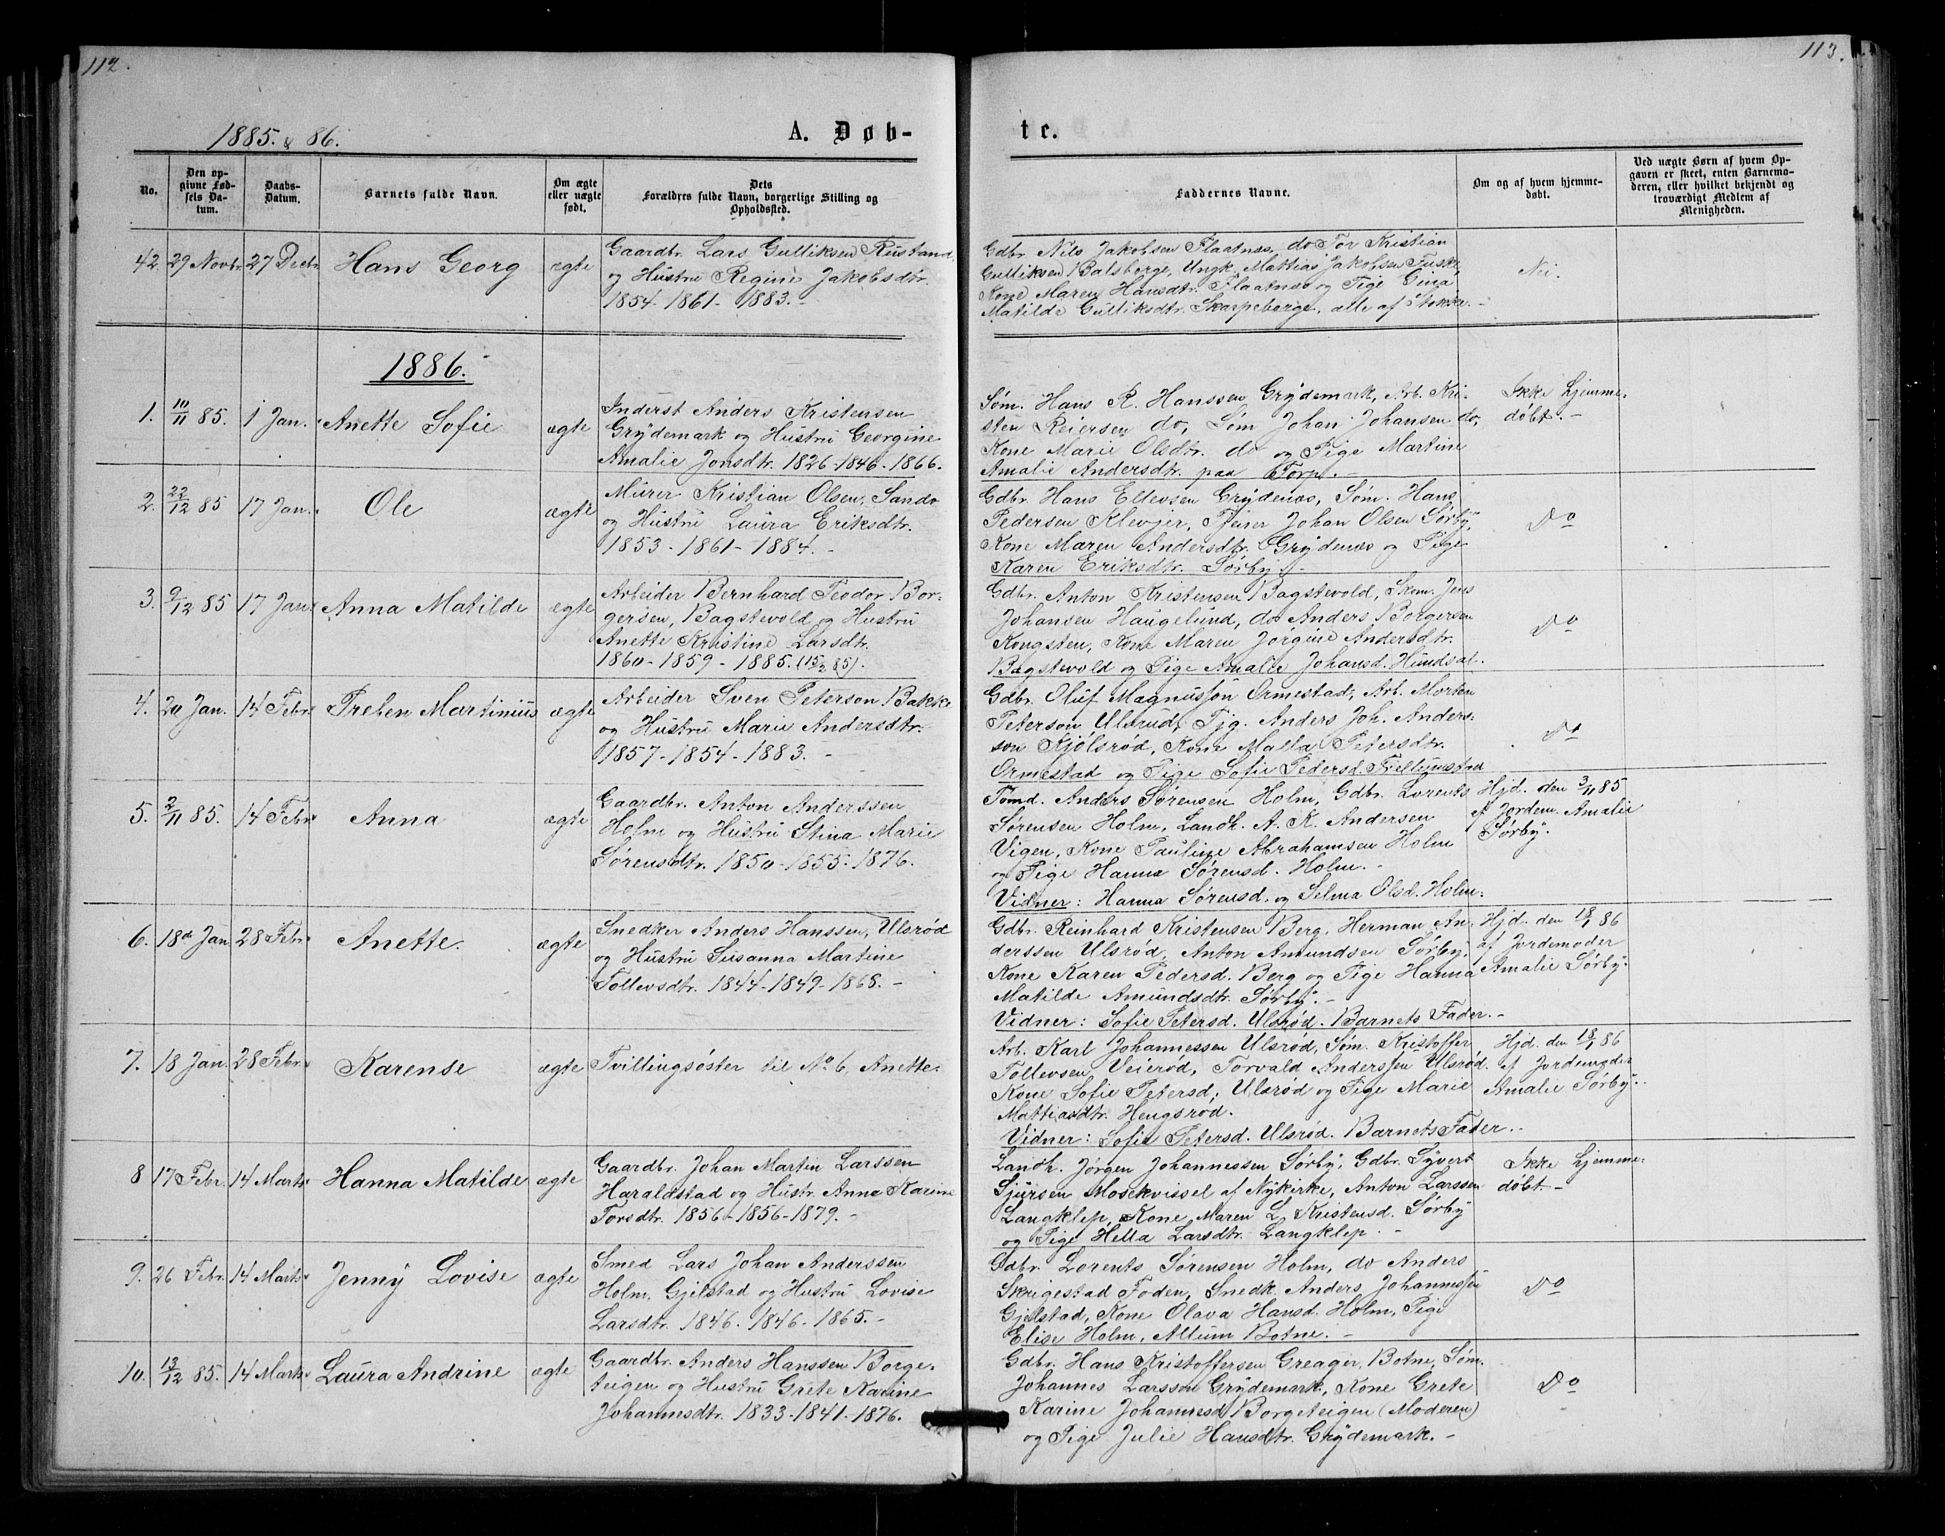 112.
113.
1885. & 86.
A. Døb-
te.
No.
Den op-
givne Fød-
sels Da-
tum.
Daabs-
Datum.
Barnets fulde Navn.
Om ægte
eller uægte
født.
Dets
Forældres fulde Navn, borgerlige Stilling og
Opholdssted.
Faddernes Navne.
Om og af hvem hjemme-
døbt.
Ved uægte Børn af hvem Op-
gaven er skeet, enten Barnemo-
deren, eller hvilket bekjendt og
troværdigt Medlem af
Menigheden.
42 29 Novbr. 27 Decbr. Hans Georg ægte
Gaardbr. Lars Gulliksen Rustand,
og Hustru Regine Jakobsdtr.
1854 - 1861 - 1883. -
Gdbr. Nils Jakobsen Flaatnes, do Tor Kristian
Gulliksen Balsberge, Ungk. Mattias Jakobsen Fuske,
Kone Maren Hansdtr. Flaatnes og Pige Gina
Matilde Gulliksdtr. Skarpeborge, alle af Stokke. -
Nei.
1886.
1. 10/11 85. 1 Jan. Anette Sofie ægte
Inderst Anders Kristensen
Grydemark og Hustru Georgine
Amalie Jonsdtr. 1826-1846-1866.
Søm. Hans R. Hanssen Grydemark, Arb. Kri-
sten Reiersen do, Søm Johan Johansen do,
Kone Marie Olsdtr. do og Pige Martine
Amalie Andersdtr. paa Torp. -
Ikke hjemme-
døbt. -
2. 22/12 85 17 Jan. Ole ægte
Murer Kristian Olsen, Sando
og Hustru Laura Eriksdtr.
1853 - 1861 - 1884. -
Gdbr Hans Ellevsen Grydenes, Søm. Hans
Pedersen Klevjer, Tjener Johan Olsen Sørby,
Kone Maren Andersdtr. Grydenes og Pige
Karen Eriksdtr. Sørby. -
Do
3. 9/12 85 17 Jan. Anna Matilde ægte
Arbeider Bernhard Teodor Bor-
gersen, Bagstevold og Hustru
Anette Kristine Larsdtr.
1860 - 1859 - 1885. (15/3 85).
Gdbr. Anton Kristensen Bagstevold, Skom. Jens
Johansen Haugelund, do Anders Borgersen
Kongsten, Kone Maren Jørgine Andersdtr.
Bagstevold og Pige Amalie Johansd. Hundsal.
Do
4. 20 Jan. 14 Febr. Preben Martinius ægte
Arbeider Sven Peterson Bakke
og Hustru Marie Andersdtr.
1857 - 1854 - 1883. -
Gdbr. Oluf Magnusson Ormestad, Arb. Morten
Peterson Ulsrud, Tjg. Anders Joh. Anders-
son Kjølsrød, Kone Malla Petersdtr.
Ormestad og Pige Sofie Pedersd.
Do
5. 2/11 85. 14 Febr. Anna ægte
Gaardbr. Anton Anderssen
Holm og Hustru Stina Marie
Sørensdtr. 1850 - 1855 - 1876.
Tømd. Anders Sørensen Holm, Gdbr. Lorents
Sørensen Holm, Landh. A. K. Andersen
Vigen, Kone Pauline Abrahamsen Holm
og Pige Hanna Sørensd. Holm. -
Vidner: Hanna Sørensd. og Selma Olsd. Holm.
Hjd. den 3/11 85
af Jordem. Amalie
Sørby.
6. 18de Jan 28 Febr. Anette. ægte
Snedker Anders Hanssen, Ulsrød
og Hustru Susanna Martine
Tollevsdtr. 1844 - 1849 - 1868. -
Gdbr. Reinhard Kristensen Berg, Herman An-
derssen Ulsrød, Anton Amundsen Sørby,
Kone Karen Pedersd. Berg og Pige Hanna
Matilde Amundsdtr. Sørby. -
Vidner: Sofie Petersd. Ulsrød. Barnets Fader. -
Hjd. den 18/1 86
af Jordemoder
Amalie Sørby.
7. 18 Jan. 28 Febr. Karense ægte
Tvillingsøster til No 6, Anette.
Arb. Karl Johannessen Ulsrød, Søm. Kristoffer
Tollevsen Veierød, Torvald Anderssen Ulsrød.
Kone Sofie Petersd, Ulsrød og Pige Marie
Mattiasdtr. Hengsrød.
Vidner: Sofie Petersd. Ulsrød. Barnets Fader. -
Hjd. den 18/1 86
af Jordemoder
Amalie Sørby.
8 17 Febr. 14 Marts Hanna Matilde ægte
Gaardbr. Johan Martin Larssen
Haraldstad og Hustr. Anna Karine
Torsdtr. 1856 - 1856 - 1879. -
Landh. Jørgen Johannessen Sørby, Gdbr. Syvert
Sjursen Mosekvissel af Nykirke, Anton Larssen
Langklep, Kone Maren L. Kristensd. Sørby
og Pige Hella Larsdtr. Langklep. -
Ikke hjemme-
døbt -
9. 26 Febr. 14 Marts Jenny Lovise ægte
Smed Lars Johan Anderssen
Holm, Gjelstad og Hustru Lovise
Larsdtr. 1846. 1846 - 1865. -
Gdbr. Lorents Sørensen Holm, do Anders
Skrigestad Foden, Snedk. Anders Johannessen
Gjelstad, Kone Olava Hansd. Holm, Pige
Elise Holm, Allum Botne. -
Do
10. 13/12 85. 14 Marts Laura Andrine ægte
Gaardbr. Anders Hanssen Borge-
teigen og Hustru Grete Karine
Johannesdtr. 1833 - 1841 - 1876.
Gdbr. Hans Kristoffersen Greager, Botne, Søm.
Johannes Larsson Grydemark, Kone Grete
Karine Johannesd Borgeteigen (Moderen)
og Pige Julie Hansdtr. Grydemark. -
Do